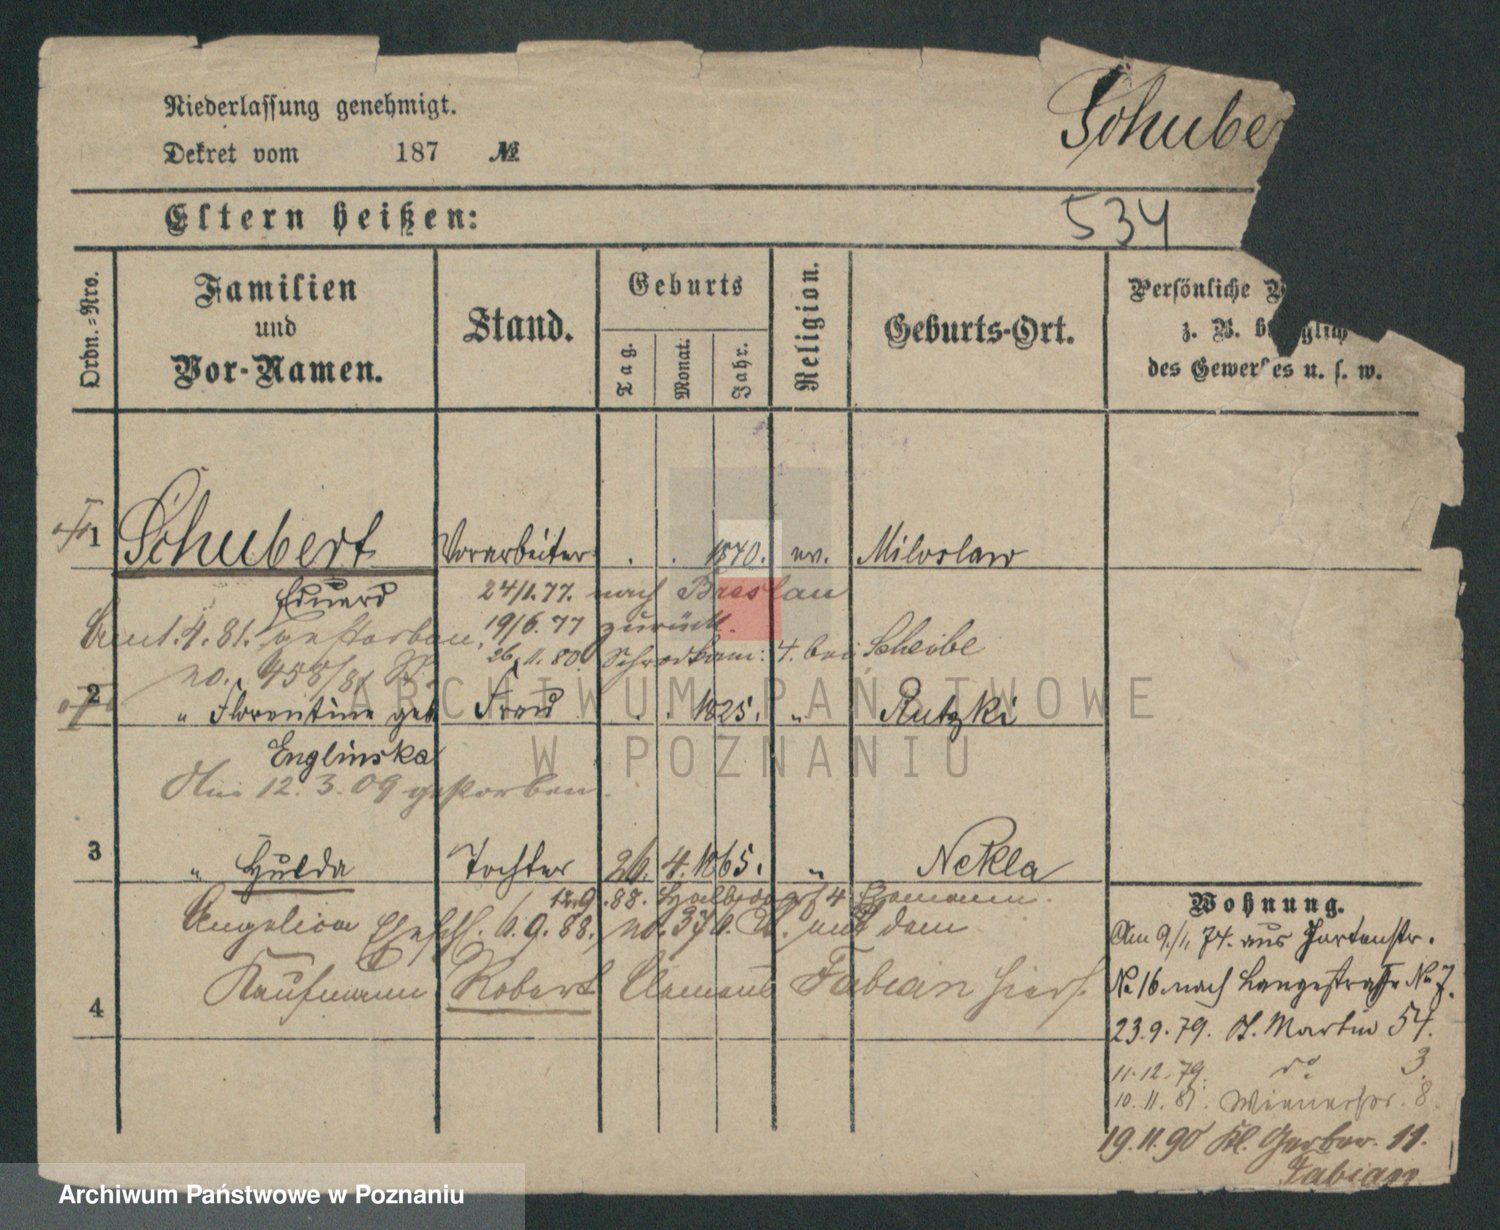 Niederlassung genehmigt.
Schube
Dekret vom 187 №
Eltern heißen:
534
Ordn.-Nro.
Familien
und
Vor-Namen.
Stand.
Geburts
Tag.
Monat.
Jahr.
Religion.
Geburts-Ort.
Persönliche
z. B. bezüglich
des Gewerbes u. s. w.
1 Schubert Vorarbeiter . . 1840. ev. Miloslaw
Eduard 24/1.77. nach Breslau
19/6.77 zurück.
Am 1.4.81. gestorben,
26.11.80. Schrodkam: 4. bei Scheibe
no. 455/81
2 " Florentine geb Frau . . 1825. " Rutzki
Englinska
Am 12.3.09 gestorben.
3 " Hulda Tochter 26. 4. 1865. " Nekla
12.9.88. Halbdorf 4
Angelica Ehesch. 6.9.88. no. 376. mit dem
Kaufmann Robert Clemens Fabian hiers.
4
Wohnung.
Am 9./1. 74. aus Gartenstr.
No 16. nach Langestraße No 7.
23.9.79. St. Martin 54.
11.12.79. do 3.
10.11.81. Wienerstr. 8.
19.11.90 Kl. Gerber. 11.
Fabian
ARCHIWUM PAŃSTWOWE
W POZNANIU
Archiwum Państwowe w Poznaniu